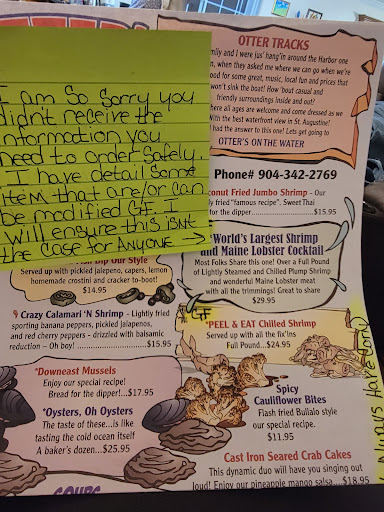 I am so sorry you
didn't receive the
information you
need to order safely.
I have detail some
item that are/or can
be modified GF. I
will ensure this isnt
the case for Anyone →
OTTER TRACKS
mily and I were jus' hang'in around the Harbor one
n, when they asked me where we can go when we're
ood for some great, music, local fun and prices that
won't sink the boat! How 'bout casual and
friendly surroundings inside and out?
here all ages are welcome and come dressed as we
With the best waterfront view in St. Augustine!
I had the answer to this one! Lets get going to
OTTER'S ON THE WATER
Phone# 904-342-2769
conut Fried Jumbo Shrimp - Our
ly fried "famous recipe". Sweet Thai
for the dipper...$15.95
World's Largest Shrimp
and Maine Lobster Cocktail
Most Folks Share this one! Over a Full Pound
of Lightly Steamed and Chilled Plump Shrimp
and wonderful Maine Lobster meat
with all the trimmings! Great to share
$29.95
GF
*PEEL & EAT Chilled Shrimp
Served up with all the fix'ins
Full Pound...$24.95
Spicy
Cauliflower Bites
Flash fried Buffalo style
our special recipe.
$11.95
Cast Iron Seared Crab Cakes
This dynamic duo will have you singing out
loud! Enjoy our pineapple mango salsa....$18.95
Dip Our Style
Served up with pickled jalapeno, capers, lemon
homemade crostini and cracker to-boot!
$14.95
Crazy Calamari 'N Shrimp - Lightly fried
sporting banana peppers, pickled jalapenos,
and red cherry peppers - drizzled with balsamic
reduction – Oh boy! ...............$15.95
*Downeast Mussels
Enjoy our special recipe!
Bread for the dipper!...$17.95
*Oysters, Oh Oysters
The taste of these...is like
tasting the cold ocean itself
A baker's dozen...$25.95
SOUPS